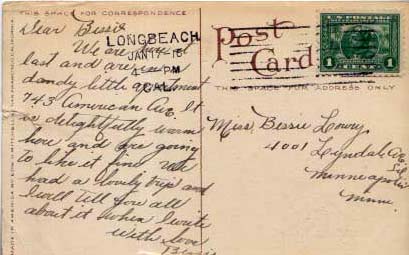 THIS SPACE FOR CORRESPONDENCE
Dear Bessie
We are
last and are in a
dandy little apartment
743 American Ave. It
is delightfully warm
here and are going
to like it fine. We
had a lovely trip and
I will tell you all
about it when I write
With love
Bessie
LONG BEACH
JAN 17
CAL.
Post
Card
U.S. POSTAGE
1
1
THIS SPACE FOR ADDRESS ONLY
Miss Bessie Lowry
4001 Lyndale Ave
So
Minneapolis
Minn.